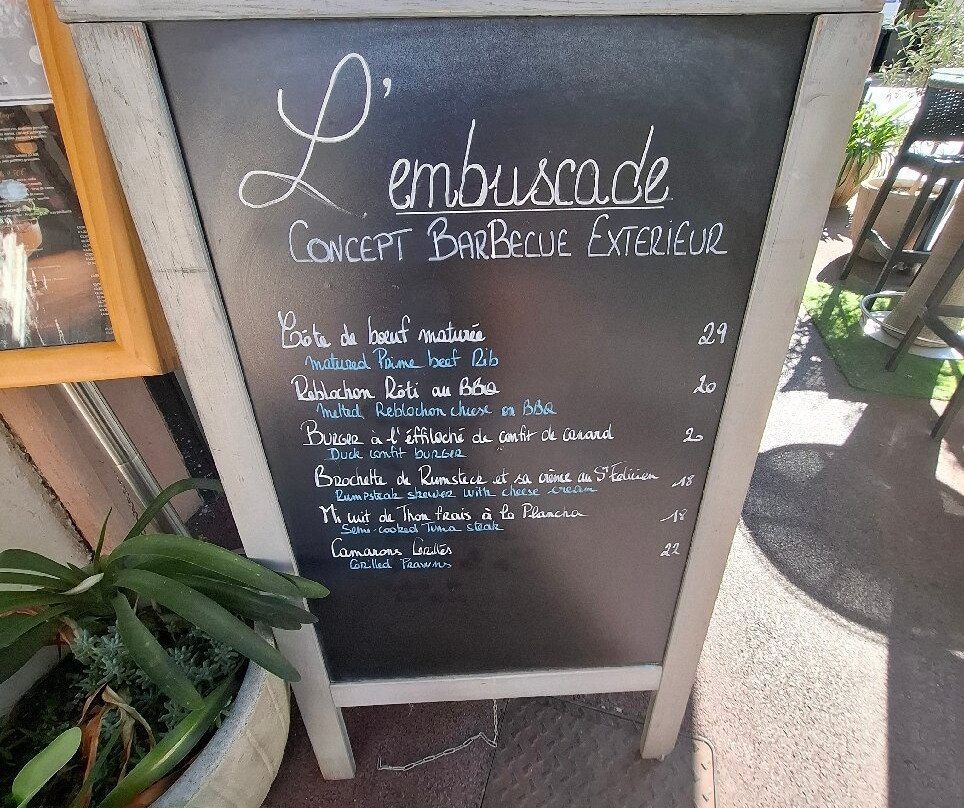 L'embuscade
CONCEPT BARBECUE EXTERIEUR
Côte de bœuf maturée 29
matured Prime beef Rib
Reblochon Rôti au BBQ 20
Melted Reblochon cheese on BBQ
BURGER à l'éffiloché de confit de canard 20
DUCK CONFIT BURGER
Brochette de Rumsteck et sa crème au St Felicien 18
Rumpsteak skewer with cheese cream
Mi cuit de Thon frais à la Plancha 18
Semi-cooked Tuna steak
Camarons Grillés 22
Grilled Prawns